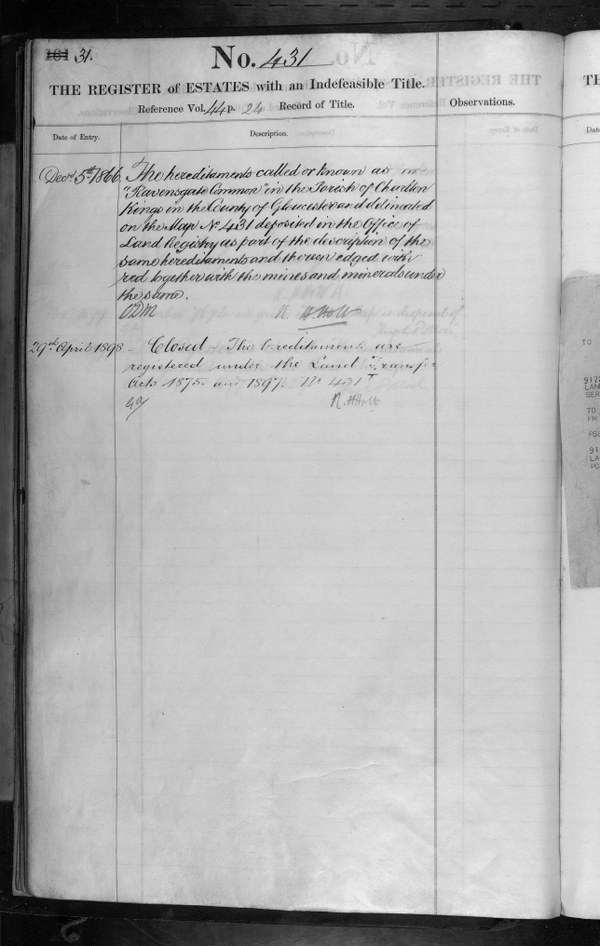 31.
No. 431
THE REGISTER of ESTATES with an Indefeasible Title.
Reference Vol. 44 p. 24 Record of Title.
Observations.
Date of Entry.
Description.
Decr. 5th 1866.
The hereditaments called or known as
"Ravensgate Common" in the Parish of Charlton
Kings in the County of Gloucester and delineated
on the Map No 431 deposited in the Office of
Land Registry as part of the description of the
same hereditaments and thereon edged with
red together with the mines and minerals under
the same.
R. H. Holt
29th April 1898
Closed - The hereditaments are
registered under the Land Transfer
Acts 1875 and 1897. No 431
R. H. Holt
TH
Dat
TO
917
LAN
SER
TO
FM
91
LA
PO